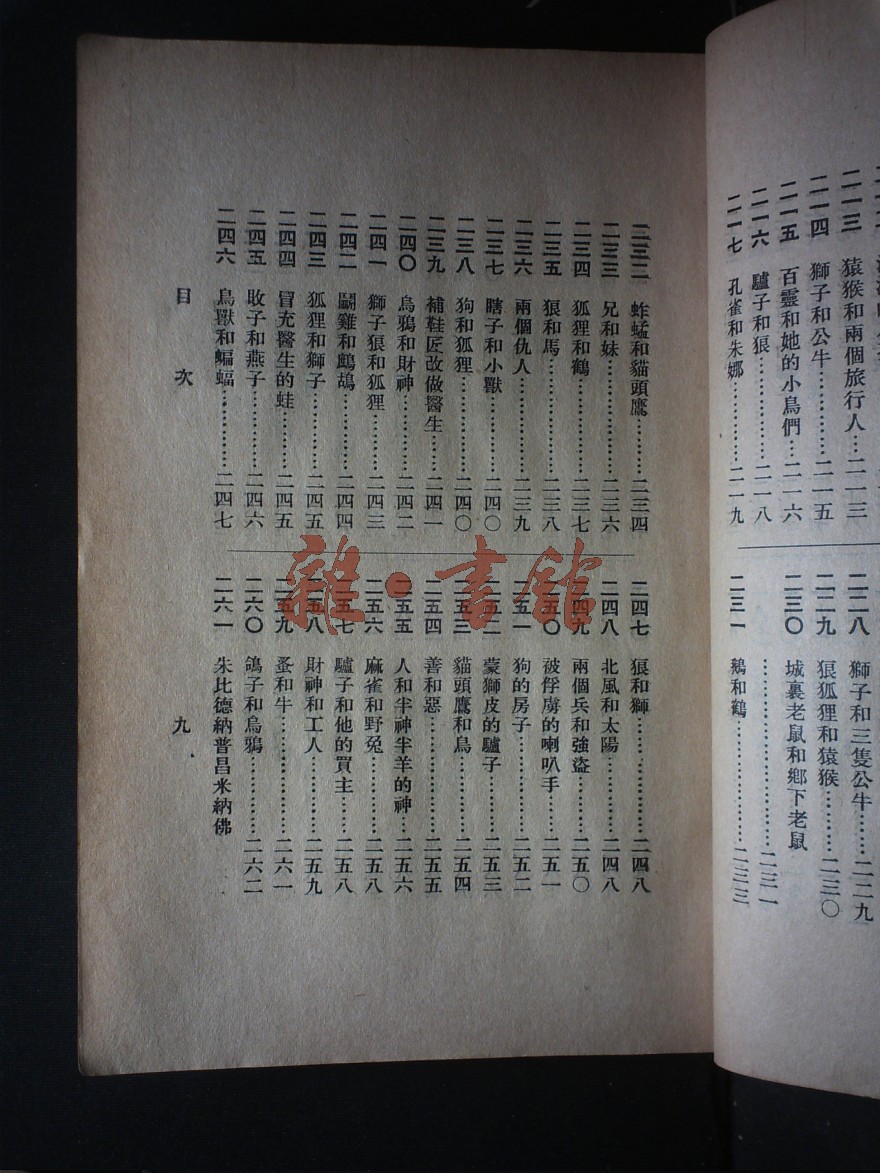 二一三 猿猴和兩個旅行人……二一三
二一四 獅子和公牛…………二一五
二一五 百靈和她的小鳥們…二一六
二一六 驢子和狼……………二一八
二一七 孔雀和朱娜…………二一九
二二八 獅子和三隻公牛……二二九
二二九 狼狐狸和猿猴………二三〇
二三〇 城裏老鼠和鄉下老鼠
…………………二三一
二三一 鵝和鶴………………二三三
二三二 蚱蜢和貓頭鷹………二三四
二三三 兄和妹………………二三六
二三四 狐狸和鶴……………二三七
二三五 狼和馬………………二三八
二三六 兩個仇人……………二三九
二三七 瞎子和小獸…………二四〇
二三八 狗和狐狸……………二四〇
二三九 補鞋匠改做醫生……二四一
二四〇 烏鴉和財神…………二四二
二四一 獅子狼和狐狸………二四三
二四二 鬭雞和鷓鴣…………二四四
二四三 狐狸和獅子…………二四五
二四四 冒充醫生的蛙………二四五
二四五 蚊子和燕子…………二四六
二四六 鳥獸和蝙蝠…………二四七
二四七 狼和獅………………二四八
二四八 北風和太陽…………二四八
二四九 兩個兵和強盜………二五〇
二五〇 被俘虜的喇叭手……二五一
二五一 狗的房子……………二五二
二五二 蒙獅皮的驢子………二五三
二五三 貓頭鷹和鳥…………二五四
二五四 善和惡………………二五五
二五五 人和半神半羊的神…二五六
二五六 麻雀和野兔…………二五八
二五七 驢子和他的買主……二五八
二五八 財神和工人…………二五九
二五九 蚤和牛………………二六一
二六〇 鴿子和烏鴉…………二六二
二六一 朱比德納普昌米納佛
目次 九
雜·書館